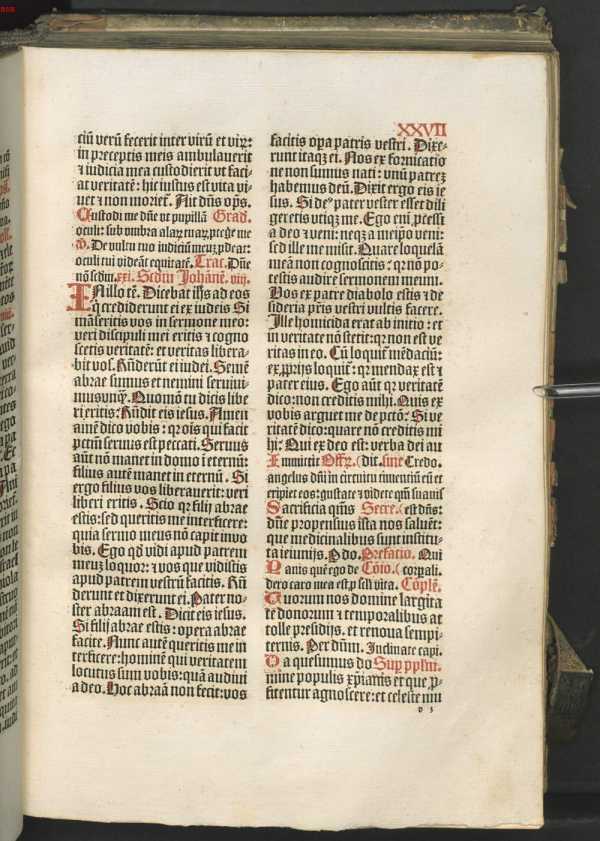 XXVII
ciū verū fecerit inter virū et virū:
in preceptis meis ambulauerit
⁊ iudicia mea custodierit vt faci-
at veritatē: hic iustus est vita vi-
uet ⁊ non morieť. Ait dn̄s op̄s.
Custodi me dn̄e vt pupillā Grad.
oculi: sub vmbra alaꝝ tuaꝝ ꝓtege me
V. De vultu tuo iudiciū meuꝫ ꝓdeat:
oculi tui videāt equitatē. Trac. Dn̄e
nō scdm̄. xxi. Scdm̄ Johānē. viij.
IN illo tē. Dicebat ih̄s ad eos
q̄ crediderunt ei ex iudeis Si
māseritis vos in sermone meo:
veri discipuli mei eritis ⁊ cogno
scetis veritatē: et veritas libera-
bit vos. Rn̄derūt ei iudei. Semē
abrae sumus et nemini seruiui-
mus vnqȝ. Quomō tu dicis libe
ri eritis: Rn̄dit eis iesus. Amen
amē dico vobis: qꝛ ois qui facit
pctm̄ seruus est peccati. Seruus
aūt nō manet in domo ī eternū:
filius autē manet in eternū. Si
ergo filius vos liberauerit: veri
liberi eritis. Scio qꝛ filij abrae
estis: sed queritis me interficere:
quia sermo meus nō capit in vo
bis. Ego qd̄ vidi apud patrem
meuꝫ loquor: ⁊ vos que vidistis
apud patrem vestrū facitis. Rn̄
derunt et dixerunt ei. Pater no-
ster abraam est. Dicit eis iesus.
Si filij abrae estis: opera abrae
facite. Nunc autē queritis me in
terficere: hominē qui veritatem
locutus sum vobis: quā audiui
a deo. Hoc abraā non fecit: vos
facitis oꝑa patris vestri. Dixe-
runt itaqȝ ei. Nos ex fornicatio
ne non sumus nati: vnū patreꝫ
habemus deū. Dixit ergo eis ie
sus. Si deꝰ pater vester esset dili
geretis vtiqȝ me. Ego eni ꝓcessi
a deo ⁊ veni: neqȝ a meipo veni:
sed ille me misit. Quare loquelā
meā non cognoscitis: qꝛ nō po-
testis audire sermonem meum.
Vos ex patre diabolo estis ⁊ de
sideria pr̄is vestri vultis facere.
Ille homicida erat ab initio: et
in veritate nō stetit: qꝛ non est ve
ritas in eo. Cū loquiť mēdaciū:
ex ꝓprijs loquiť: qꝛ mendax est ⁊
pater eius. Ego aūt qꝛ veritatē
dico: non creditis mihi. Quis ex
vobis arguet me de pctō: Si ve
ritatē dico: quare nō creditis mi
hi: Qui ex deo est: verba dei au
Immittit Offr̄. (dit. sine Credo.
angelus dn̄i in circuitu timentiū eū et
eripiet eos: gustate ⁊ videte qm̄ suauis
Sacrificia qūs Secre. (est dn̄s:
dn̄e propensius ista nos saluēt:
que medicinalibus sunt institu-
ta ieiunijs. P do. Prefatio. Qui
Panis quē ego de Cōio. (corpali.
dero caro mea est ꝓ scl̄i vita. Cōplē.
Tuorum nos domine largita
te donorum ⁊ temporalibus at
tolle presidijs. et renoua sempi-
ternis. Per dūm. Inclinate capi.
Da quesumus do Suꝑ ppl̄m.
mine populis xp̄ianis et que ꝓ-
fitentur agnoscere: et celeste mu
d 3